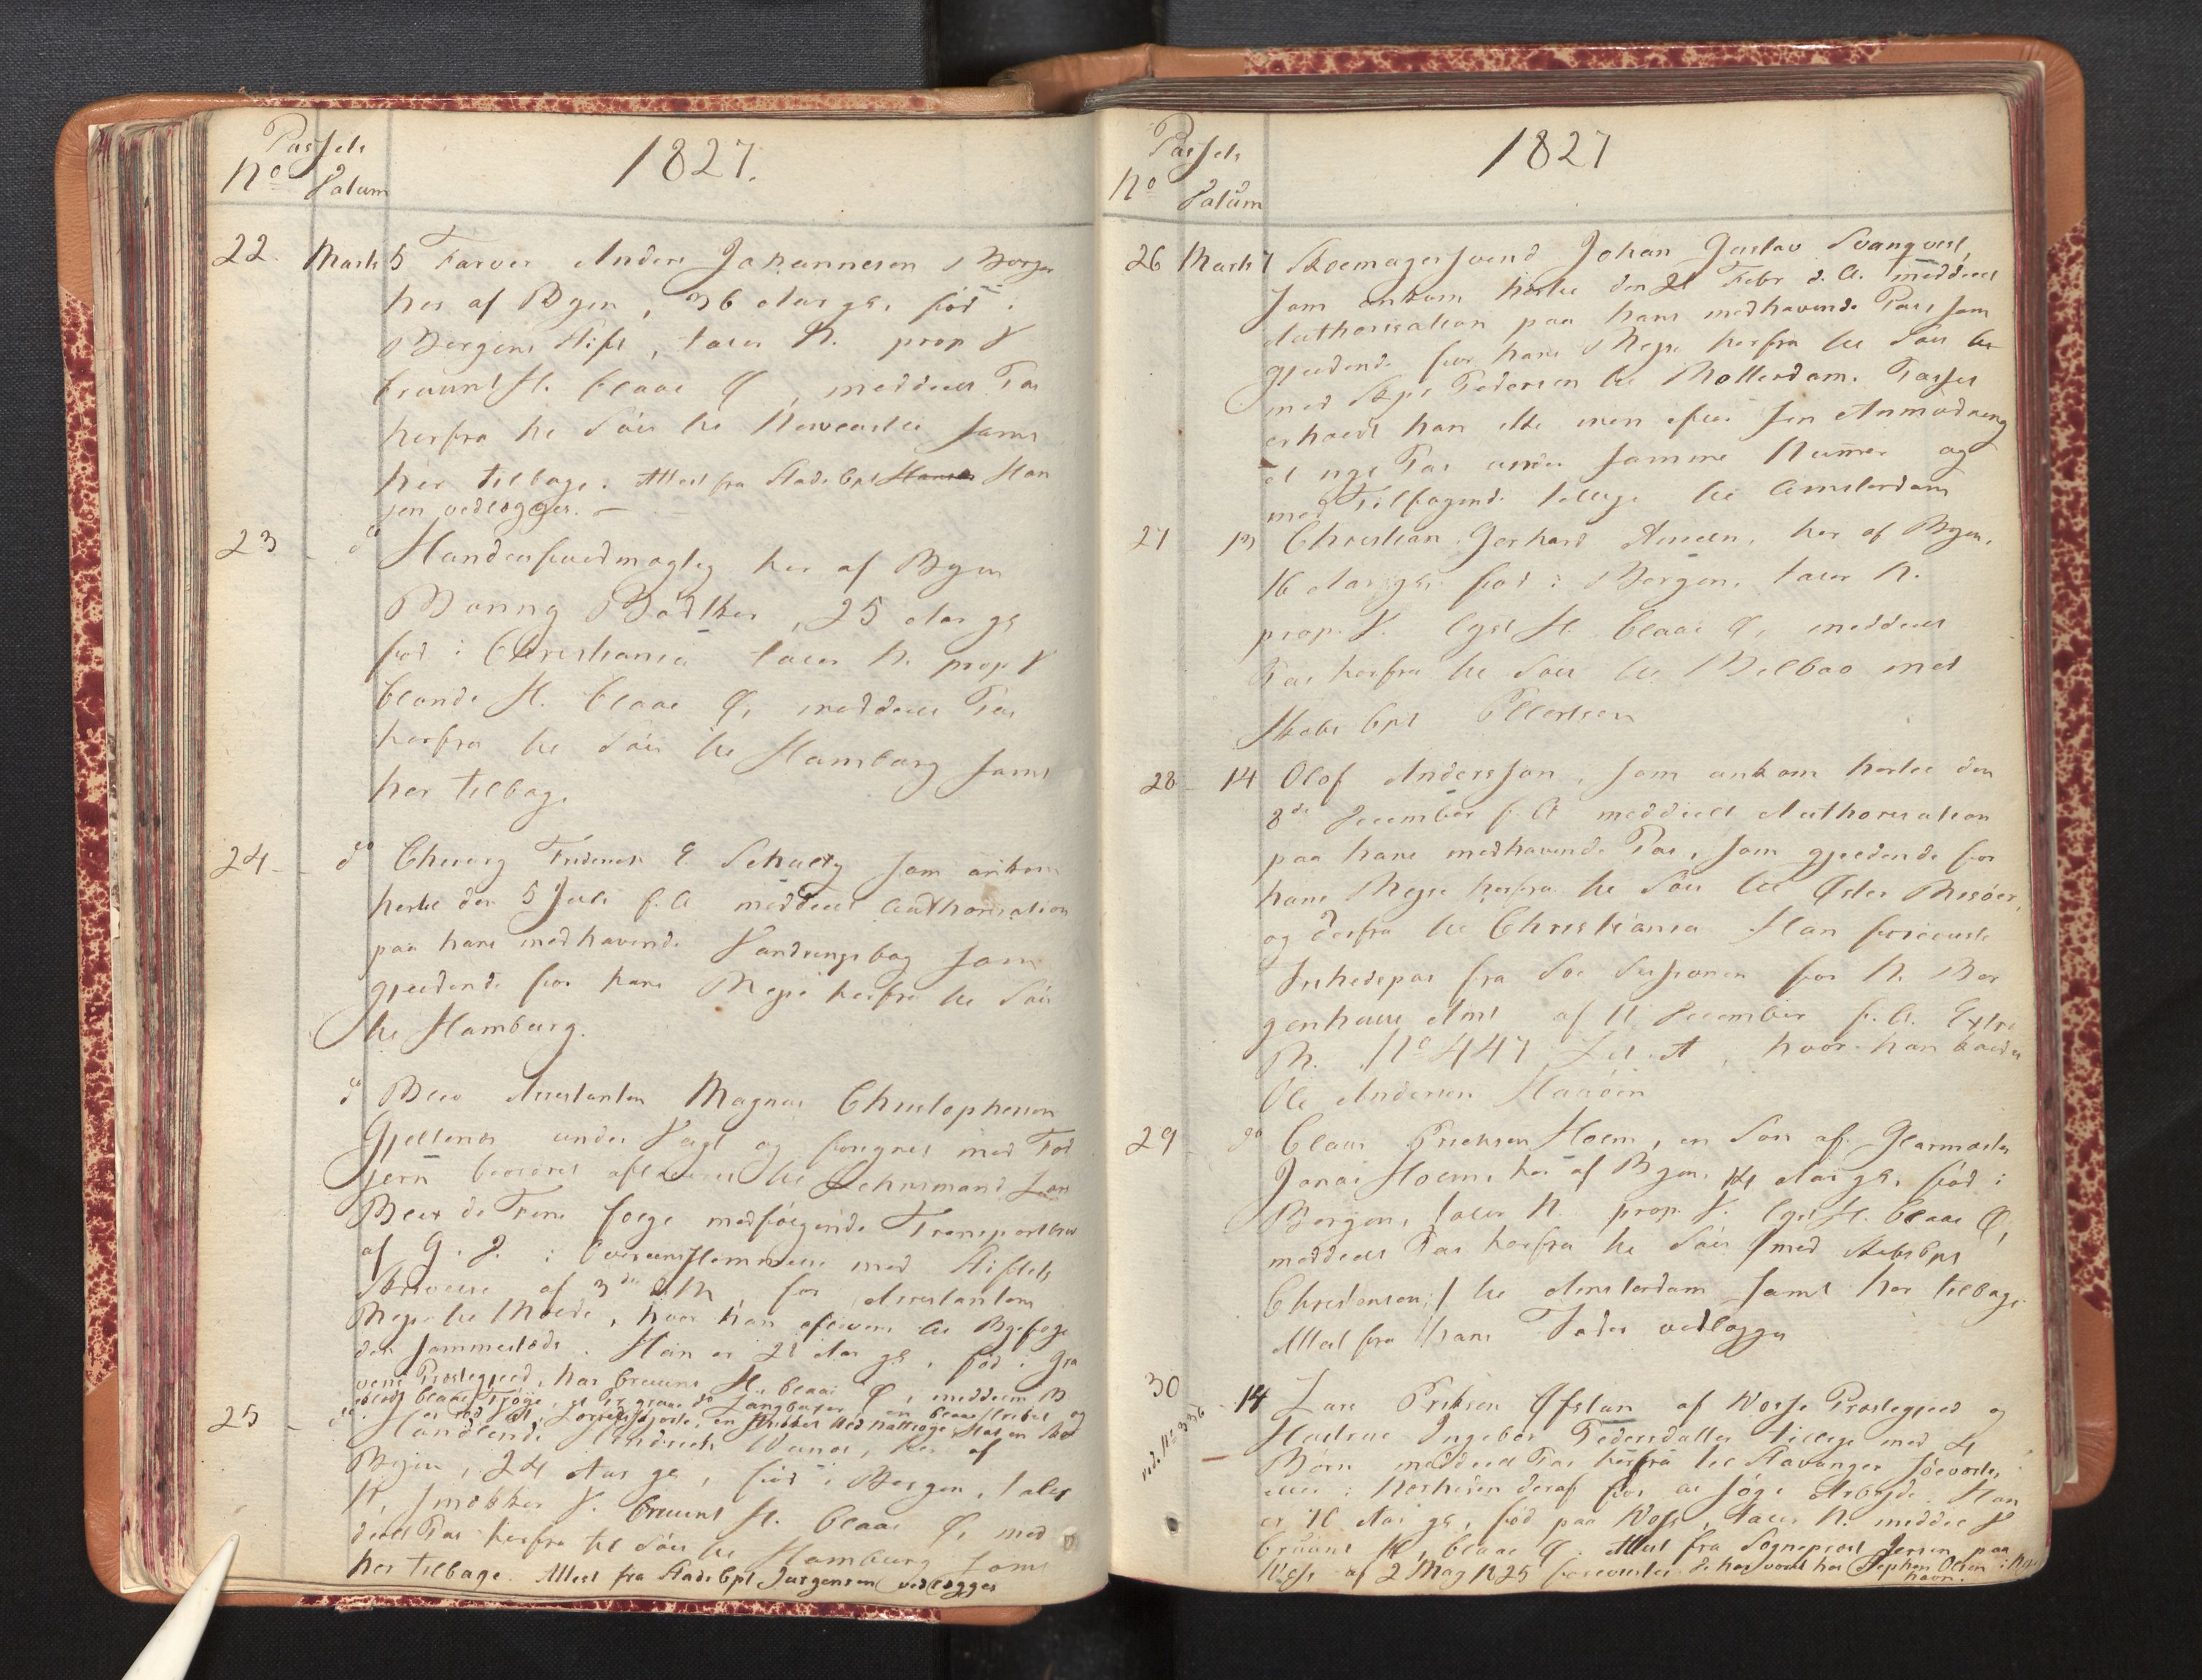 Passets
No Datum
1827.
22. Marts 5 Farver Anders Johannesen Borger
her af Byen, 36 Aar gl. fød i
Bergens Stift, taler N. prop V
bruunt H. blaae Ø, meddeelt Pas
herfra til Søes til Newcastle samt
her tilbage. Attest fra Skibs Cpt Hansen Han
sen vedlægges. -
23 - do Handelsfuldmægtig her af Byen
Bonny Bødtker, 25 Aar gl
fød i Christiania taler N. prop V
blonde H. blaae Ø, meddeelt Pas
herfra til Søes til Hamburg samt
her tilbage.
24 - do Chirurg Friderich E Schultz som ankom
hertil den 5 Juli f. A meddeelt Authorisation
paa hans medhavende Vandringsbog som
gjeldende for hans Rejse herfra til Søes
til Hamburg.
do Blev Arrestanten Magnus Christophersen
Gjeltenes under Vagt og forsynet med Fod
jern afleveret til Lehnsmand
Blix de Fine følge medfølgende Transportbrev
af G. D. i Overeensstemmelse med Stiftets
Skrivelse af 3die d M, for Arrestantens
Rejse til Molde, hvor han afleveres til Byefoge
den sammestæds. Han er 28 Aar gl, fød i Gra
vens Præstegjeld, har bruunt H. blaae Ø, middelm B
blaae Trøje, graae do Langbuxer, en blaae stribet og
en strikket rød Nathue
25 - do Handlende Friderich Werner, her af
Byen, 24 Aar gl, fød i Bergen, taler
N, smekker V. bruunt H. blaae Ø, med
deelt Pas herfra til Søes til Hamburg samt
her tilbage. Attest fra Skibs Cpt Jurgensen vedlægges
Passets
No Datum
1827
26 Marts 7 Skoemagersvend Johan Gustav Svanqvist,
som ankom hertil den 21 Febr d. A. meddeelt
Authorisation paa hans medhavende Pas som
gjeldende for hans Rejse herfra til Søes
med Skpr Pedersen til Rotterdam. Passet
erholdt han ikke men efter sin Anmodning
et nyt Pas under samme Numer og
med Tilføyende tillige til Amsterdam
27 13 Christian Gerhard Ameln, her af Byen,
16 Aar gl. fød i Bergen, taler N.
prop. V. lyst H. blaae Ø, meddeelt
Pas herfra til Søes til Bilbao med
Skibs Cpt Ellertsen
28 - 14 Olof Andersson, som ankom hertil den
8de December f. A meddeelt Authorisation
paa hans medhavende Pas, som gjeldende for
hans Rejse herfra til Søes til Øster Risøer,
og derfra til Christiania. Han foreviiste
Friehedspas fra Søe Sessionen for N. Ber
genhuus Amt af 11 December f. A. Extra
R. No 447 Lit. A, hvor han kaldes
Ole Andersen
29 - do Claus Ericksen Holm, en Søn af Glarmester
Jonas Holm, her af Byen, 14 Aar gl, fød i
Bergen, taler N. prop V. lyst H. blaae Ø,
meddeelt Pas herfra til Søes /med Skibs Cpt
Christensen,/ til Amsterdam samt her tilbage.
Attest fra hans Fader vedlægges
30 14 Lars Eriksen Øfstun af Vosse Præstegjeld og
Hustrue Ingebor Pedersdatter tillige med 4
Børn meddeelt Pas herfra til Stavanger søeværts,
i Nærheden deraf for at søge Arbejde. Han
er 40 Aar gl, fød paa Voss, taler N. middel V
bruunt H, blaae Ø. Attest fra Sogneprest Jersin paa
Voss af 2 May 1825 foreviist. De har været hos Stephen Olsen i
havn.
vide No 336